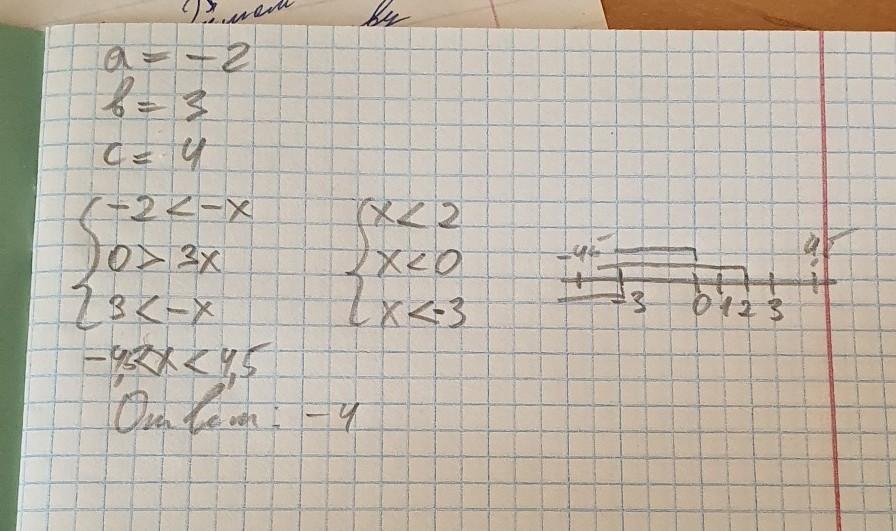 a = -2
b = 3
c = 4
-2 < -x
0 > 3x
3 < -x
x < 2
x < 0
x < -3
-4,5 4,5
-3 0 1 2 3
-4,5 < x < 4,5
Ответ: -4